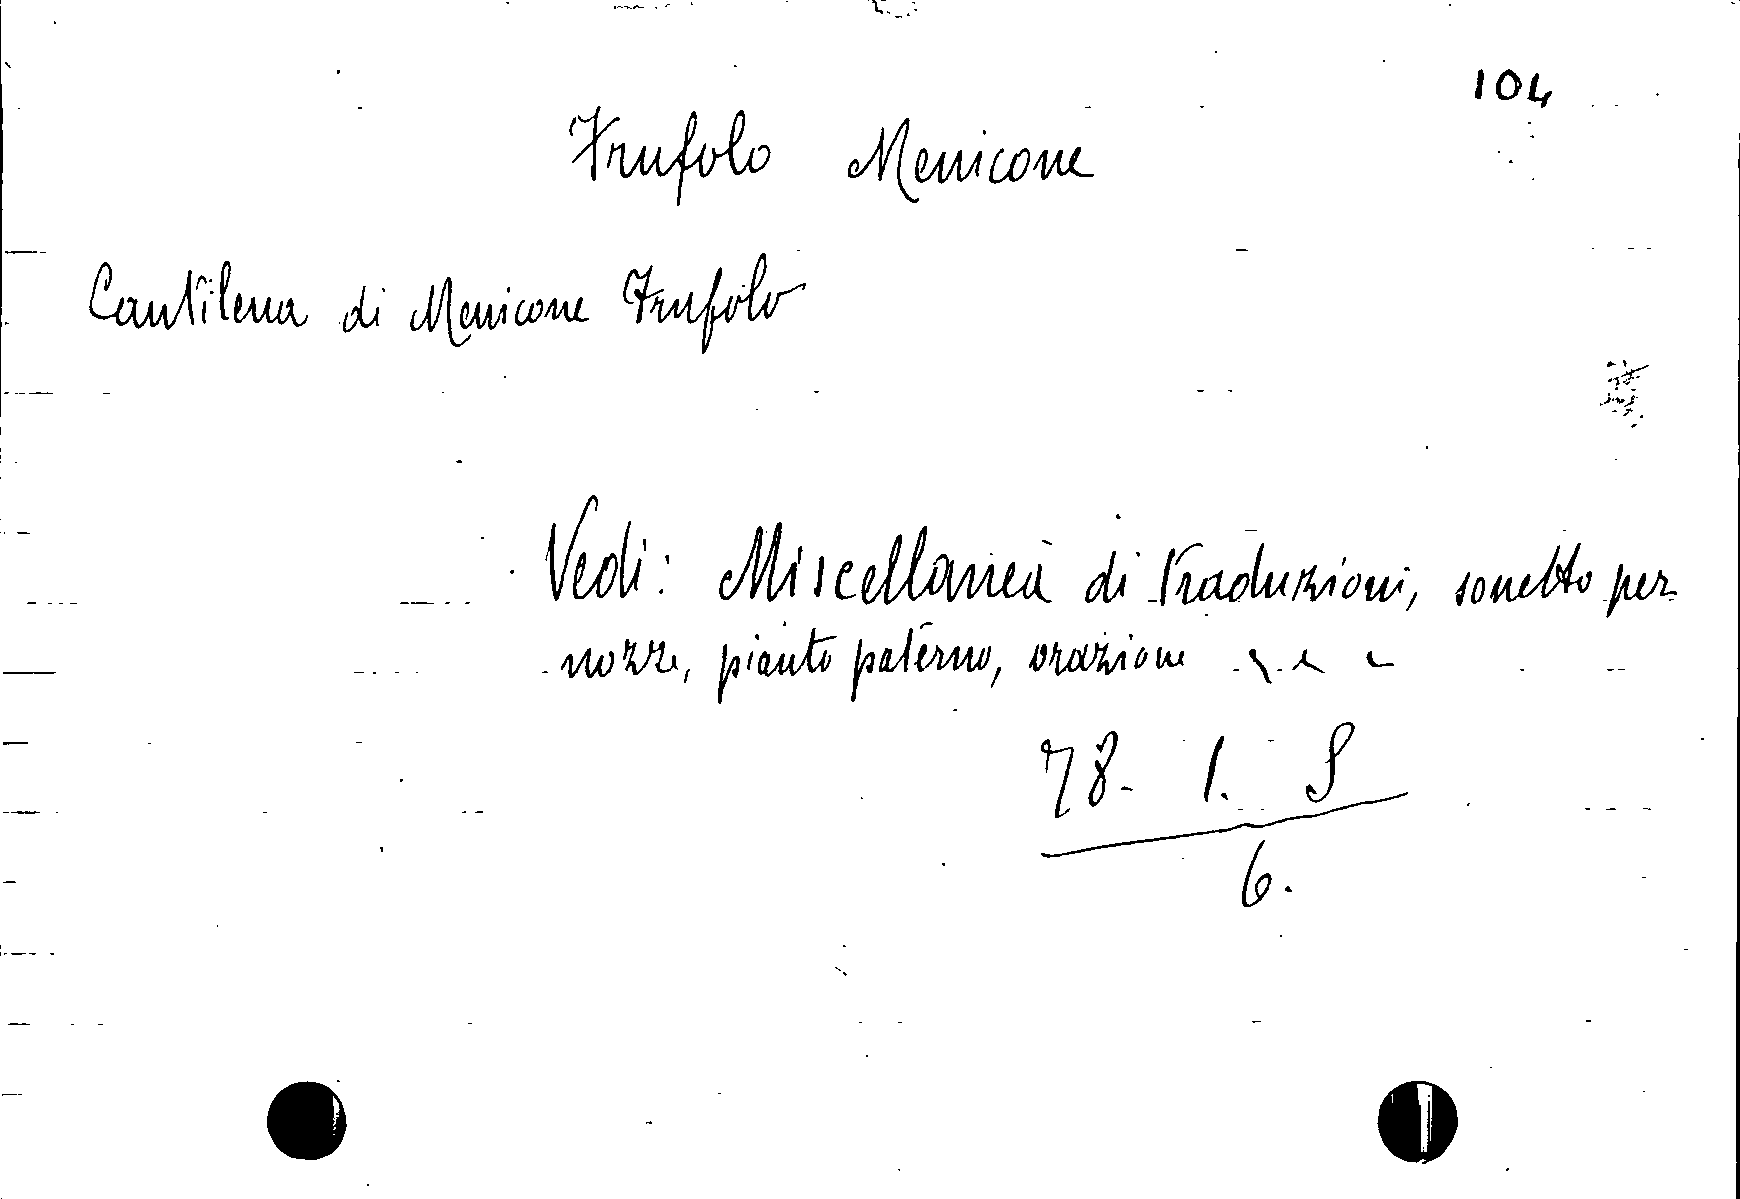 104
Frufolo Menicone
Cantilena di Menicone Frufolo
Vedi: Miscellanea di traduzioni, sonetto per
nozze, pianto paterno, orazione
78. 1. S
6.